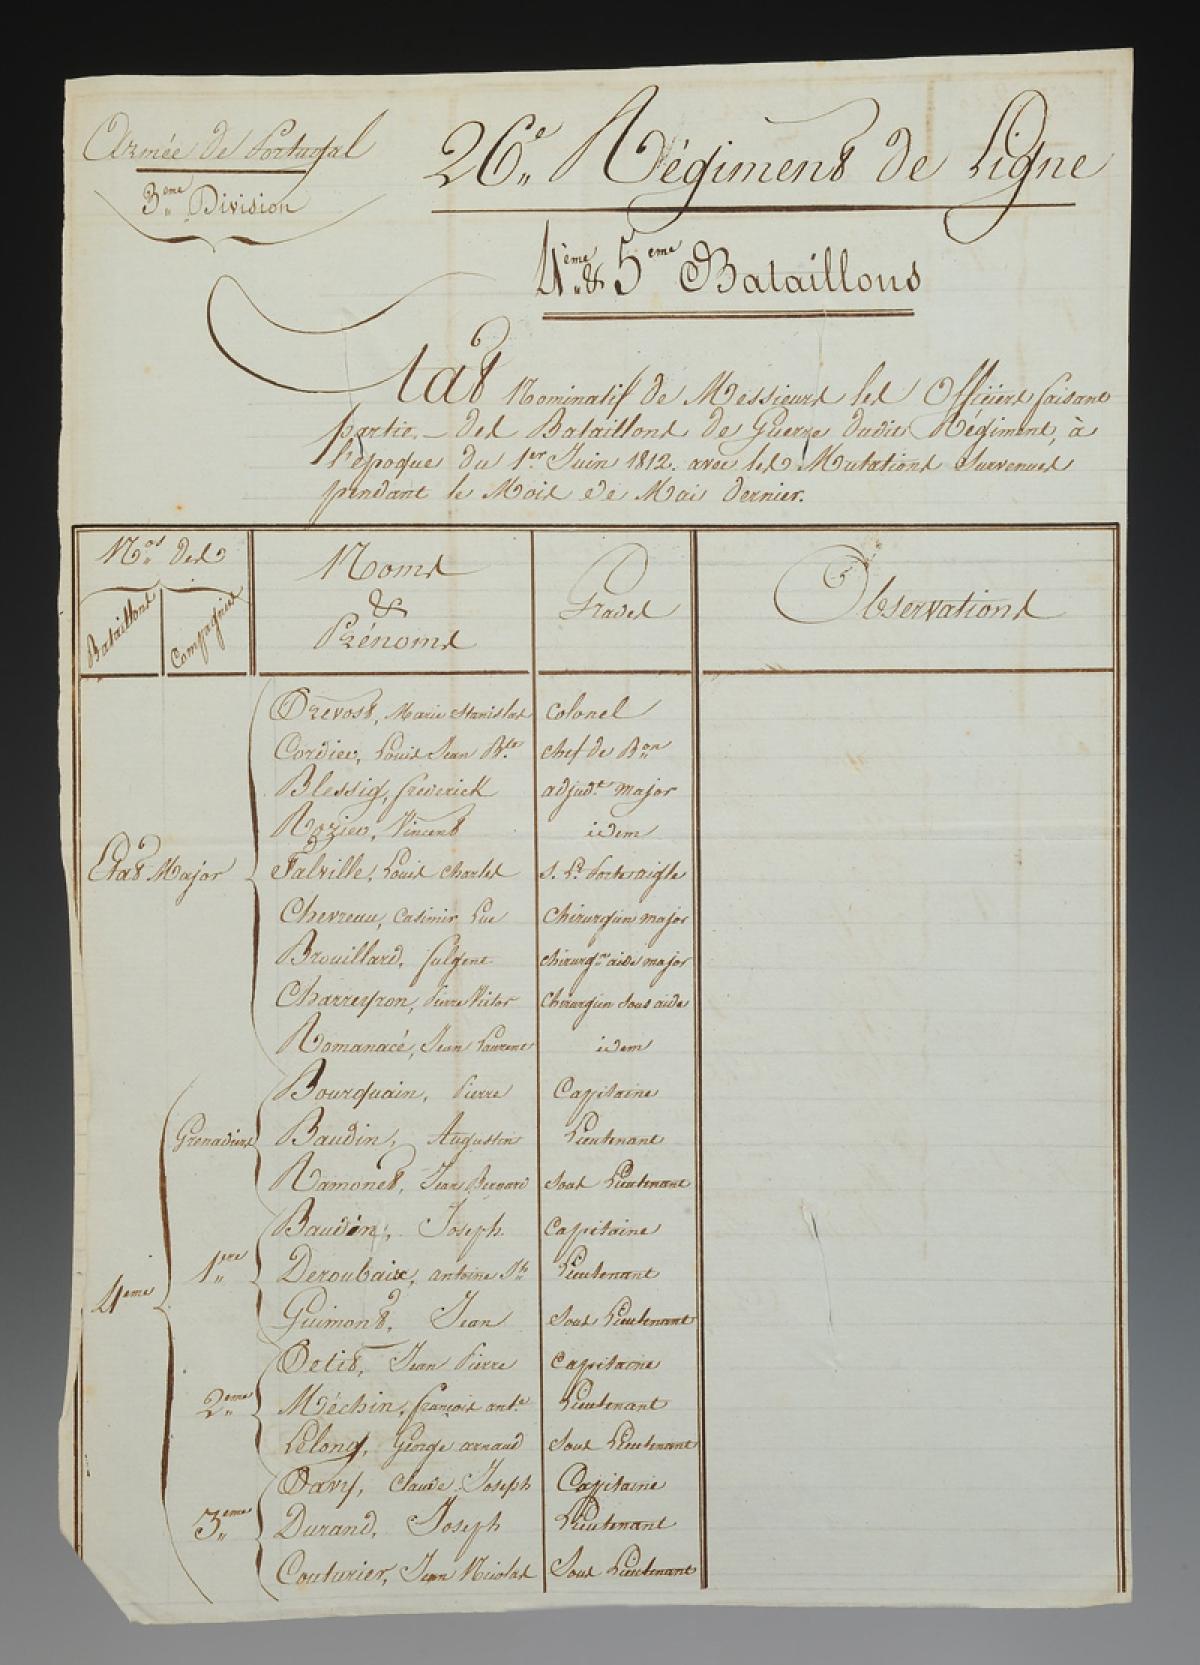 Armée de Portugal
3.ème Division
26.e Régiment de Ligne
4.ème & 5.ème Bataillons
Etat Nominatif de Messieurs les Officiers faisant
partie des Bataillons de Guerre dudit Régiment, à
l'époque du 1.er Juin 1812. avec les Mutations Survenues
pendant le Mois de Mai dernier.
N.os des
Bataillons
Compagnies
Noms
&
Prénoms
Grades
Observations
Etat Major
Prévost, Marie Stanislas Colonel
Cordier, Louis Jean B.te chef de B.on
Blessig, frederick adjud.t major
Rozier, Vincent idem
Falville, Louis Charles S. Lt. Porte aigle
Chevreau, Casimir Luc Chirurgien major
Brouillard, fulgent chirurg.en aide major
Charreyron, Pierre Victor Chirurgien Sous aide
Romanacé, Jean Laurent idem
4.ème
Grenadiers
Bourquain, Pierre Capitaine
Baudin, Augustin Lieutenant
Ramonet, Jean Bernard Sous Lieutenant
1.ère
Baudin, Joseph Capitaine
Deroubaix, antoine J.h Lieutenant
Guimont, Jean Sous Lieutenant
2.ème
Petit, Jean Pierre Capitaine
Méchin, françois ant.e Lieutenant
Lelong, George arnaud Sous Lieutenant
3.ème
Davy, Claude Joseph Capitaine
Durand, Joseph Lieutenant
Couturier, Jean Nicolas Sous Lieutenant